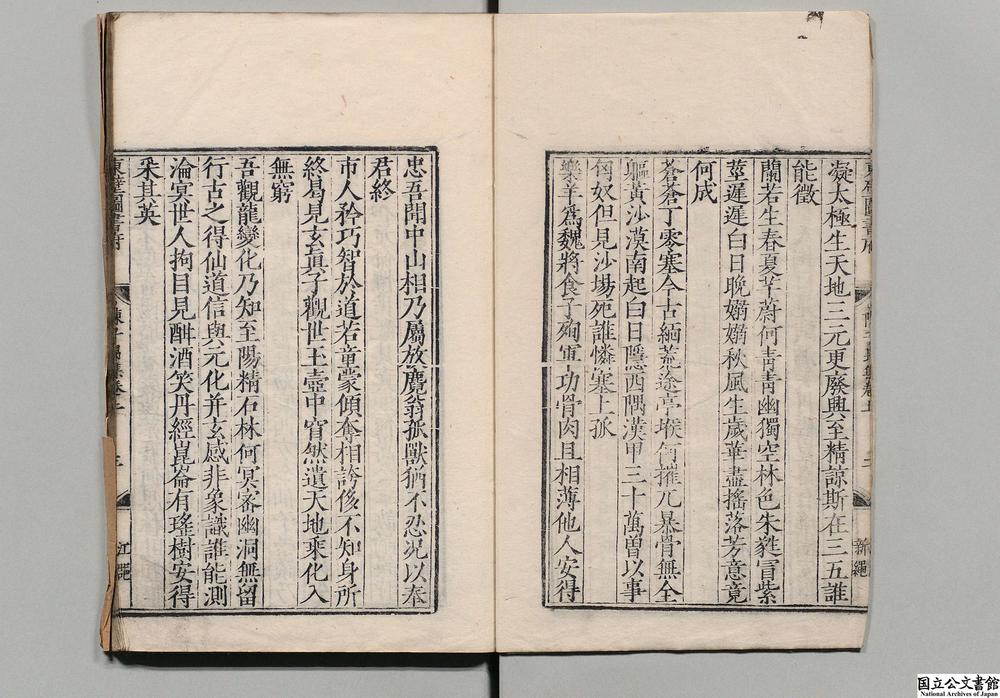 凝太極生天地三元更廢興至精諒斯在三五誰
能徵
蘭若生春夏芊蔚何青青幽獨空林色朱蕤冒紫
莖遲遲白日晚嫋嫋秋風生歲華盡搖落芳意竟
何成
蒼蒼丁零塞今古緬荒途亭堠何摧兀暴骨無全
軀黃沙漠南起白日隱西隅漢甲三十萬曾以事
匈奴但見沙場死誰憐塞上孤
樂羊爲魏將食子殉軍功骨肉且相薄他人安得
忠吾聞中山相乃屬放麑翁孤獸猶不忍況以奉
君終
市人矜巧智於道若童蒙傾奪相誇侈不知身所
終曷見玄眞子觀世玉壺中窅然遺天地乘化入
無窮
吾觀龍變化乃知至陽精石林何冥密幽洞無留
行古之得仙道信與元化并玄感非象識誰能測
淪冥世人拘目見酣酒笑丹經崑崙有瑤樹安得
采其英
東壁圖書府
国立公文書館
National Archives of Japan